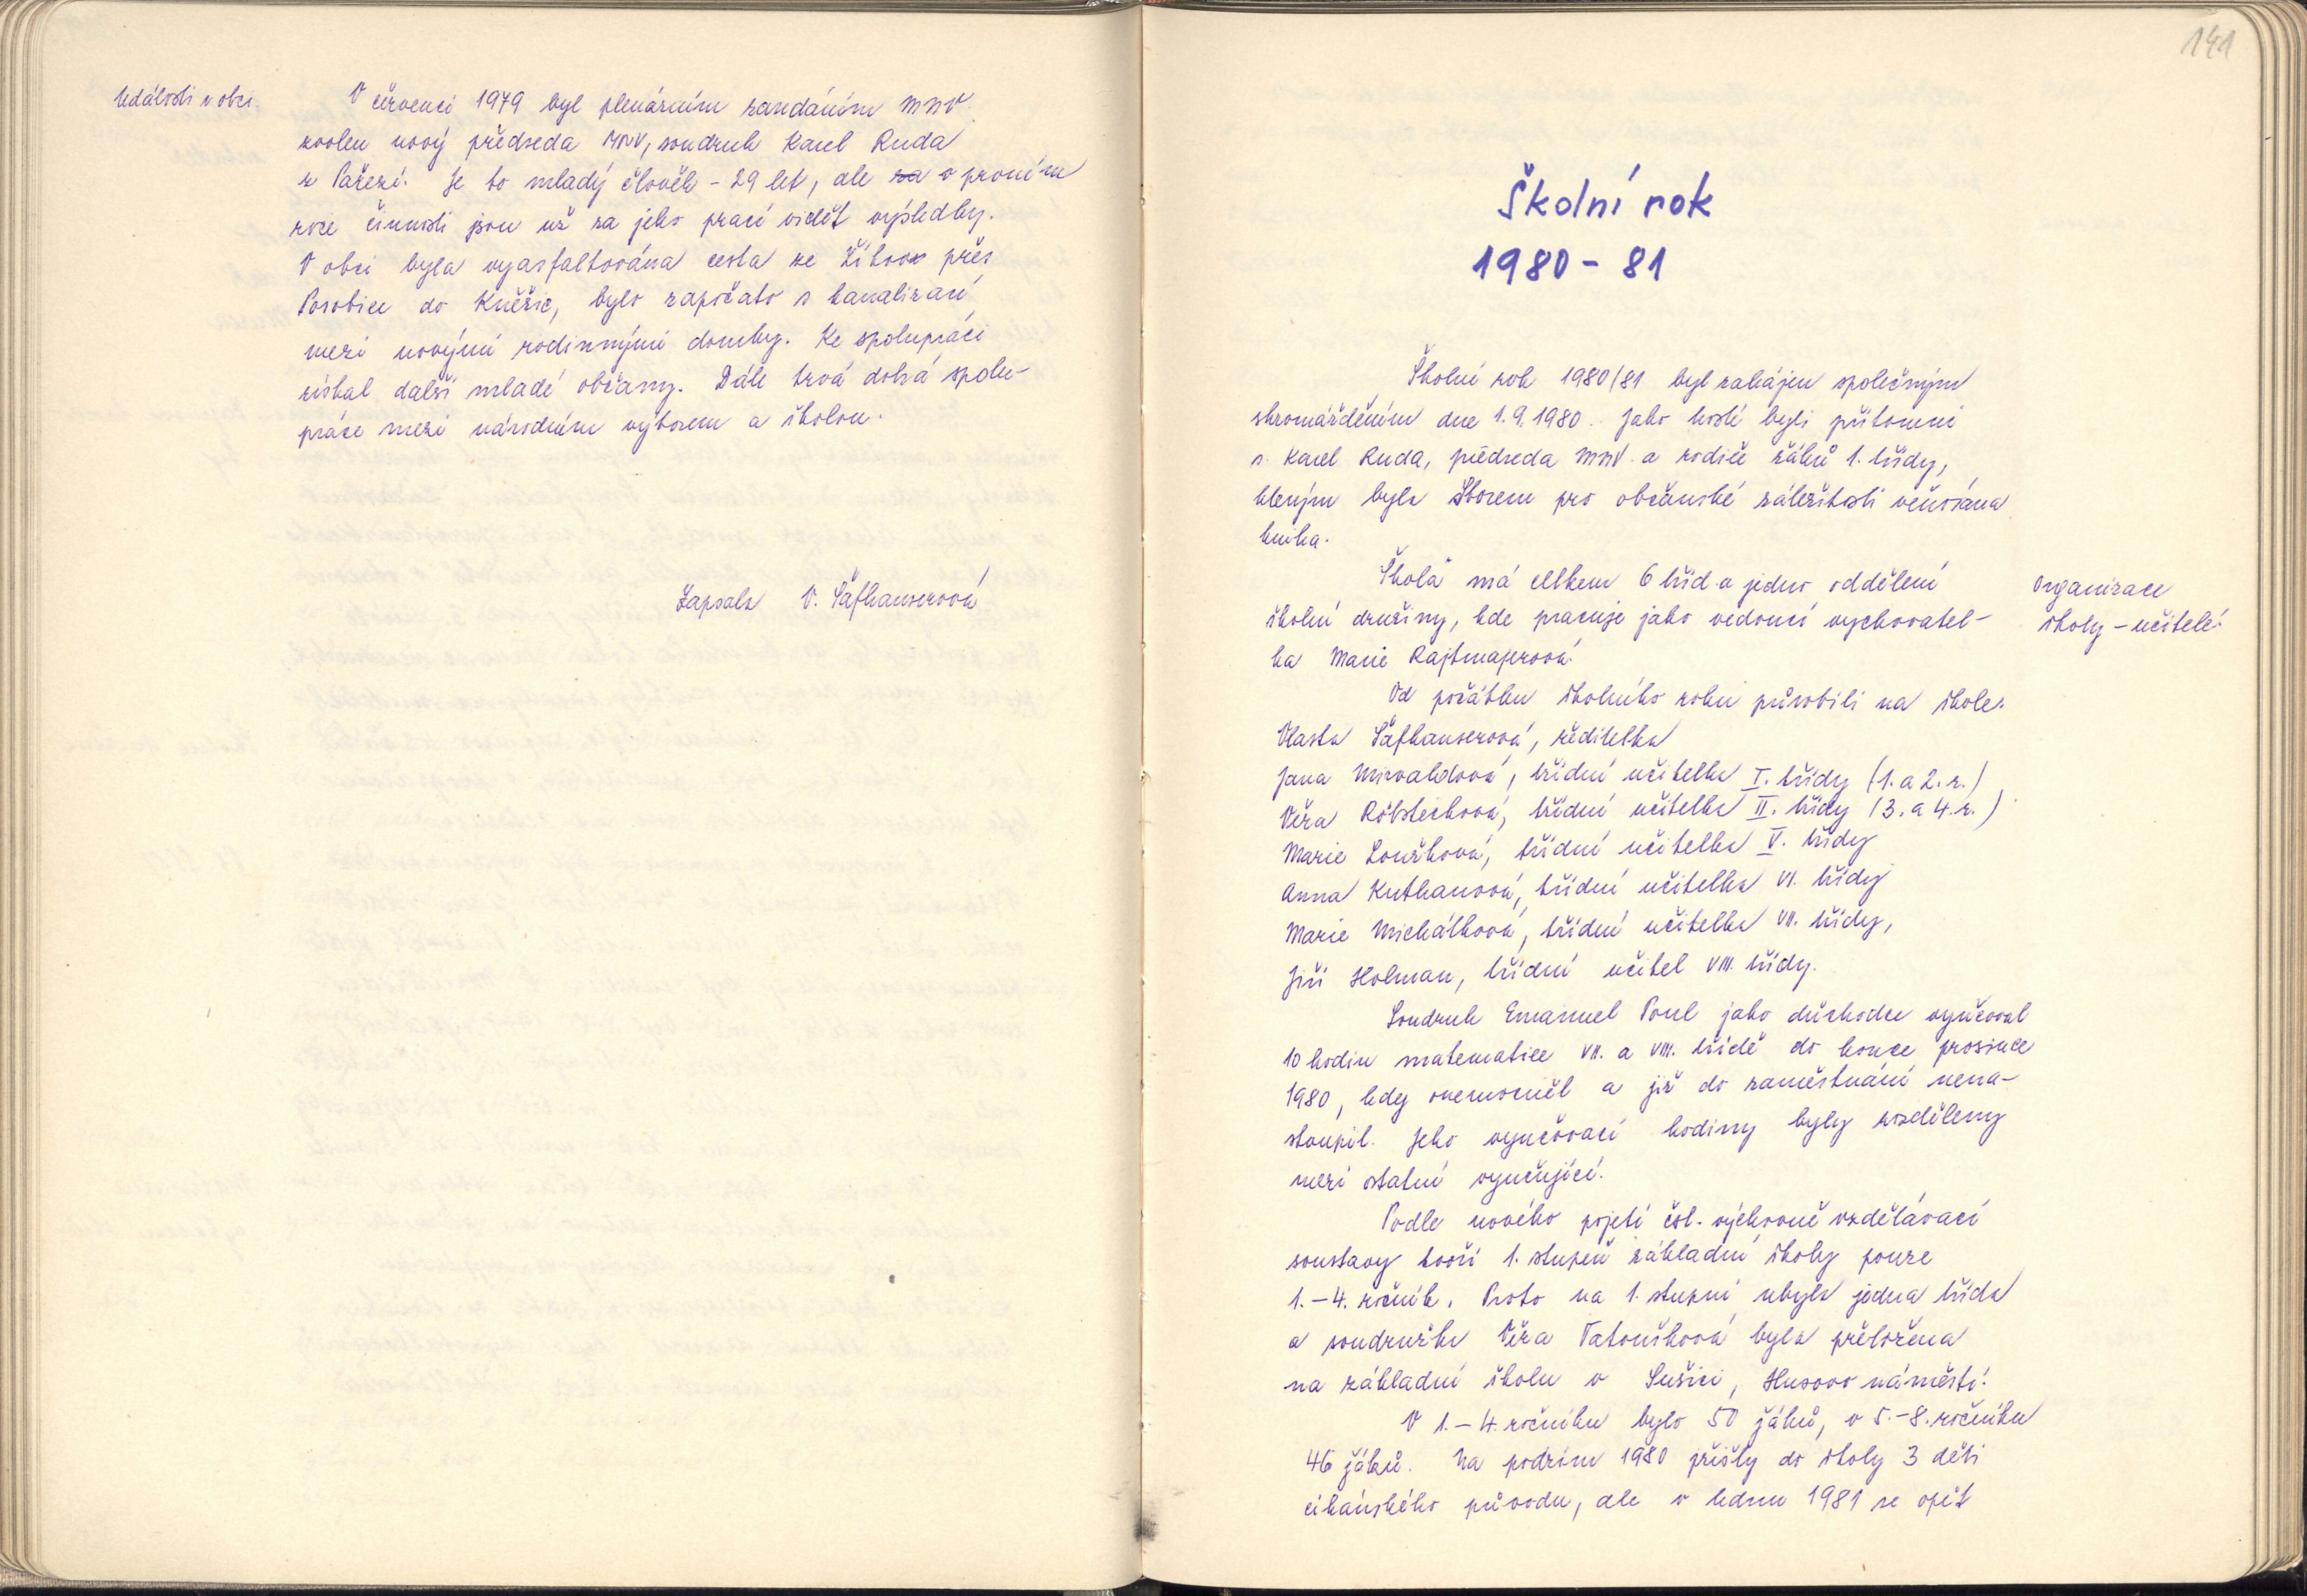 Události v obci.
V červenci 1979 byl plenárním zasedáním MNV
zvolen nový předseda MNV, soudruh Karel Ruda
z Pařezí. Je to mladý člověk - 29 let, ale za v prvním
roce činnosti jsou už za jeho prací vidět výsledky.
V obci byla vyasfaltována cesta ze Žihovic přes
Posobice do Kněžic, bylo započato s kanalizací
mezi novými rodinnými domky. Ke spolupráci
získal další mladé občany. Dále trvá dobrá spolu-
práce mezi národním výborem a školou.
Zapsala V. Šafhauserová
141
Školní rok
1980 - 81
Školní rok 1980/81 byl zahájen společným
shromážděním dne 1.9.1980. Jako hosté byli přítomni
s. Karel Ruda, předseda MNV a rodiče žáků 1. třídy,
kterým byla Sborem pro občanské záležitosti věnována
kniha.
Škola má celkem 6 tříd a jedno oddělení
školní družiny, kde pracuje jako vedoucí vychovatel-
ka Marie Rajtmajerová.
Organizace
školy - učitelé:
Od počátku školního roku působili na škole:
Vlasta Šafhauserová, ředitelka
Jana Mirvaldová, třídní učitelka I. třídy (1. a 2. r.)
Věra třídní učitelka II. třídy (3. a 4. r.)
Marie Loužková, třídní učitelka V. třídy
Anna Kuthanová, třídní učitelka VI. třídy
Marie Michálková, třídní učitelka VII. třídy,
Jiří Holman, třídní učitel VIII. třídy.
Soudruh Emanuel Poul jako důchodce vyučoval
10 hodin matematice VII. a VIII. třídě do konce prosince
1980, kdy onemocněl a již do zaměstnání nena-
stoupil. Jeho vyučovací hodiny byly rozděleny
mezi ostatní vyučující.
Podle nového pojetí čsl. výchovně vzdělávací
soustavy tvoří 1. stupeň základní školy pouze
1. - 4. ročník. Proto na 1. stupni ubyla jedna třída
a soudružka Věra Tatoušková byla přeložena
na základní školu v Sušici, Husovo náměstí.
V 1. - 4. ročníku bylo 50 žáků, v 5. - 8. ročníku
46 žáků. Na podzim 1980 přišly do školy 3 děti
cikánského původu, ale v lednu 1981 se opět